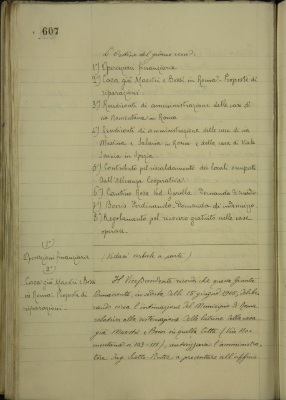 607
L'ordine del giorno reca:
1°) Operazioni finanziarie
2°) Casa già Maestri e Bossi in Roma. Proposte di
riparazioni.
3°) Rendiconti di amministrazione delle case di
via Nomentana in Roma
4°) Rendiconti di amministrazione delle case di via
e Salaria in Roma e delle case di Viale
Savoia in Spezia
5°) Contributo pel riscaldamento dei locali occupati
dall'Alleanza Cooperativa.
6°) Rosa Domanda
7°) Ferdinando. Domanda di indennizzo
8°) Regolamento pel ricovero gratuito nelle case
operaie.
(1°)
Operazioni finanziarie (Vedasi verbale a parte)
(2°)
Casa già Maestri e Bossi
in Roma. Proposte di
riparazioni.
Il Vice Presidente ricorda che questa Giunta
in seduta delli 15 giugno
l'intimazione del Municipio di Roma
relativa alla delle latrine della casa
già Maestri e Bossi in quella Città (Via No-
mentana n. 103-111), autorizzava l'amministra-
tore Ing. a presentare all'ufficio